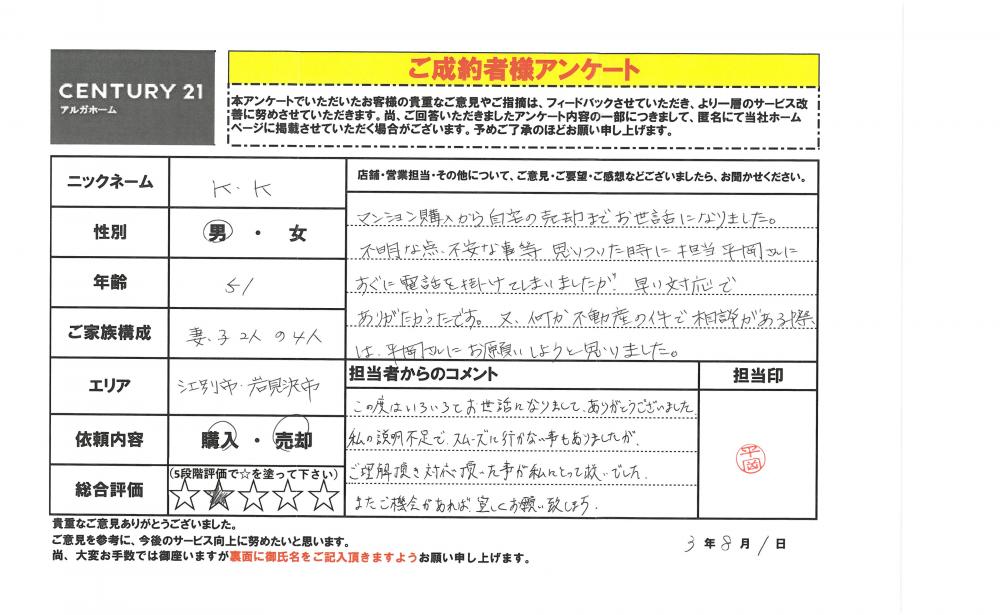 CENTURY 21
アルガホーム
ご成約者様アンケート
本アンケートでいただいたお客様の貴重なご意見やご指摘は、フィードバックさせていただき、より一層のサービス改
善に努めさせていただきます。尚、ご回答いただきましたアンケート内容の一部につきまして、匿名にて当社ホーム
ページに掲載させていただく場合がございます。予めご了承のほどお願い申し上げます。
ニックネーム
K.K
性別
男・女
年齢
51
ご家族構成
妻、子2人の4人
エリア
江別市・岩見沢市
依頼内容
購入・売却
総合評価
(5段階評価で☆を塗って下さい)
☆★☆☆☆
店舗・営業担当・その他について、ご意見・ご要望・ご感想などございましたら、お聞かせください。
マンション購入から自宅の売却までお世話になりました。
不明な点、不安な事等、思いついた時に担当平岡さんに
すぐに電話を掛けてしまいましたが、早い対応で
ありがたかったです。又、何か不動産の件で相談がある際
は、平岡さんにお願いしようと思いました。
担当者からのコメント
この度はいろいろとお世話になりまして、ありがとうございました
私の説明不足で、スムーズに行かない事もありましたが、
ご理解頂き対応頂いた事が私にとって救いでした。
またご機会があれば、宜しくお願い致します。
担当印
平岡
貴重なご意見ありがとうございました。
ご意見を参考に、今後のサービス向上に努めたいと思います。
尚、大変お手数では御座いますが裏面に御氏名をご記入頂きますようお願い申し上げます。
3年8月1日